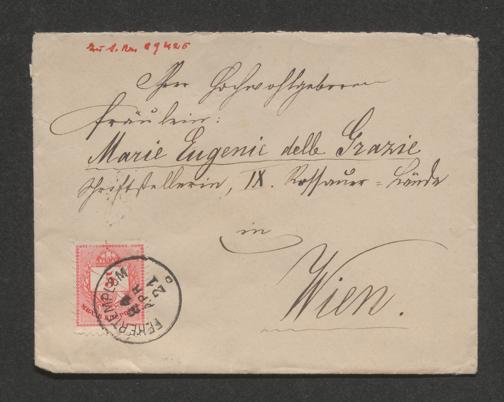 Zu I. Nr. 89426
Ihrer Hochwohlgeboren
Fräulein:
Marie Eugenie delle Grazie
Schriftstellerin, IX. Rossauer = Lände
in
Wien.
FEHÉRTEMPLOM
APR
21